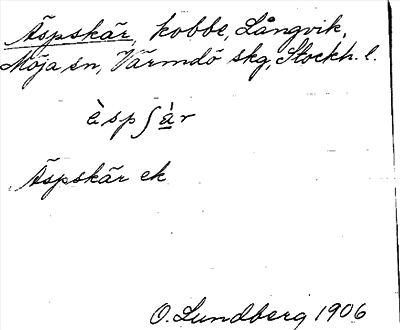 Äspskär, kobbe, Långvik,
Möja sn, Värmdö skg, Stockh. l.
èspʃàr
Äspskär ek
O. Lundberg 1906